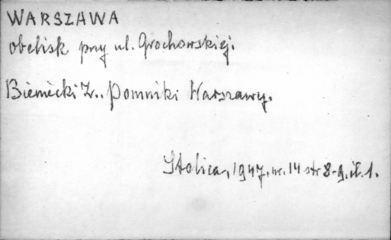 WARSZAWA
obelisk przy ul. Grochowskiej.
Bieniecki Z.. Pomniki Warszawy.
Stolica, 1947, nr. 14 str 8-9, il. 1.